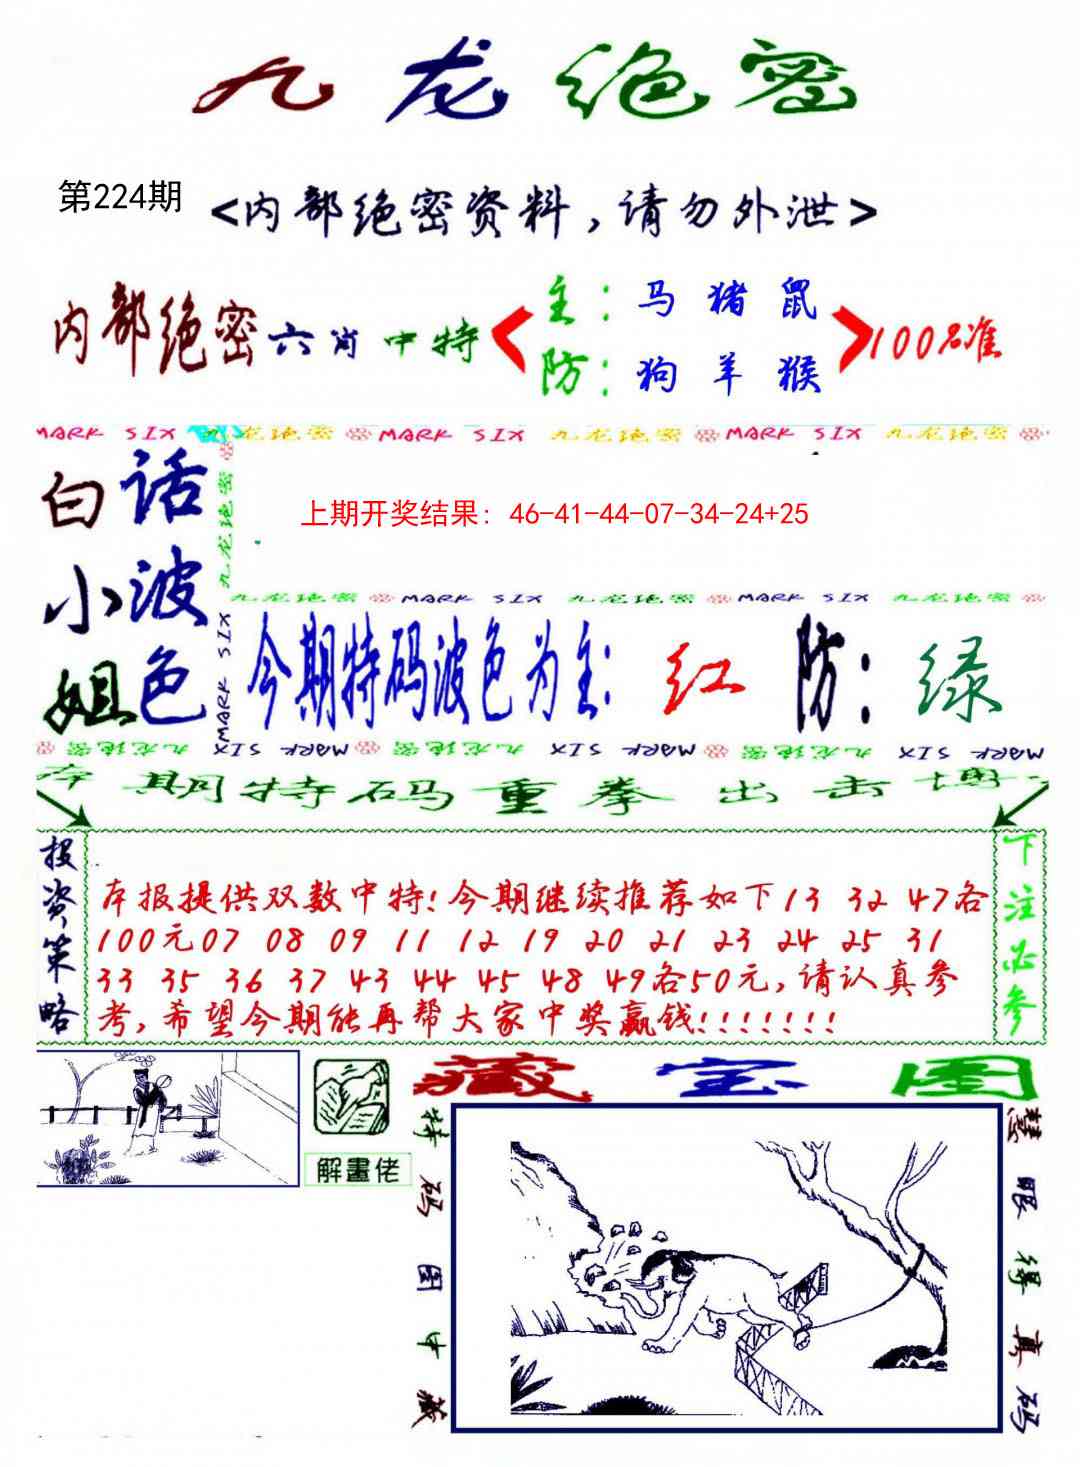 九龙绝密
第224期
<内部绝密资料,请勿外泄>
内部绝密六肖中特
主:马 猪 鼠
防:狗 羊 猴
100%准
MARK SIX 九龙绝密 MARK SIX 九龙绝密 MARK SIX 九龙绝密
白小姐
话波色
九龙绝密
MARK SIX
上期开奖结果: 46-41-44-07-34-24+25
九龙绝密 MARK SIX 九龙绝密 MARK SIX 九龙绝密
今期特码波色为主: 红 防: 绿
九龙绝密 MARK SIX 九龙绝密 MARK SIX 九龙绝密 MARK SIX
本期特码重拳出击博
投资策略
本报提供双数中特!今期继续推荐如下13 32 47各
100元07 08 09 11 12 19 20 21 23 24 25 31
33 35 36 37 43 44 45 48 49各50元,请认真参
考,希望今期能再帮大家中奖赢钱!!!!!!!
下注必参
解畫佬
藏宝图
特码图中藏
慧眼得真码